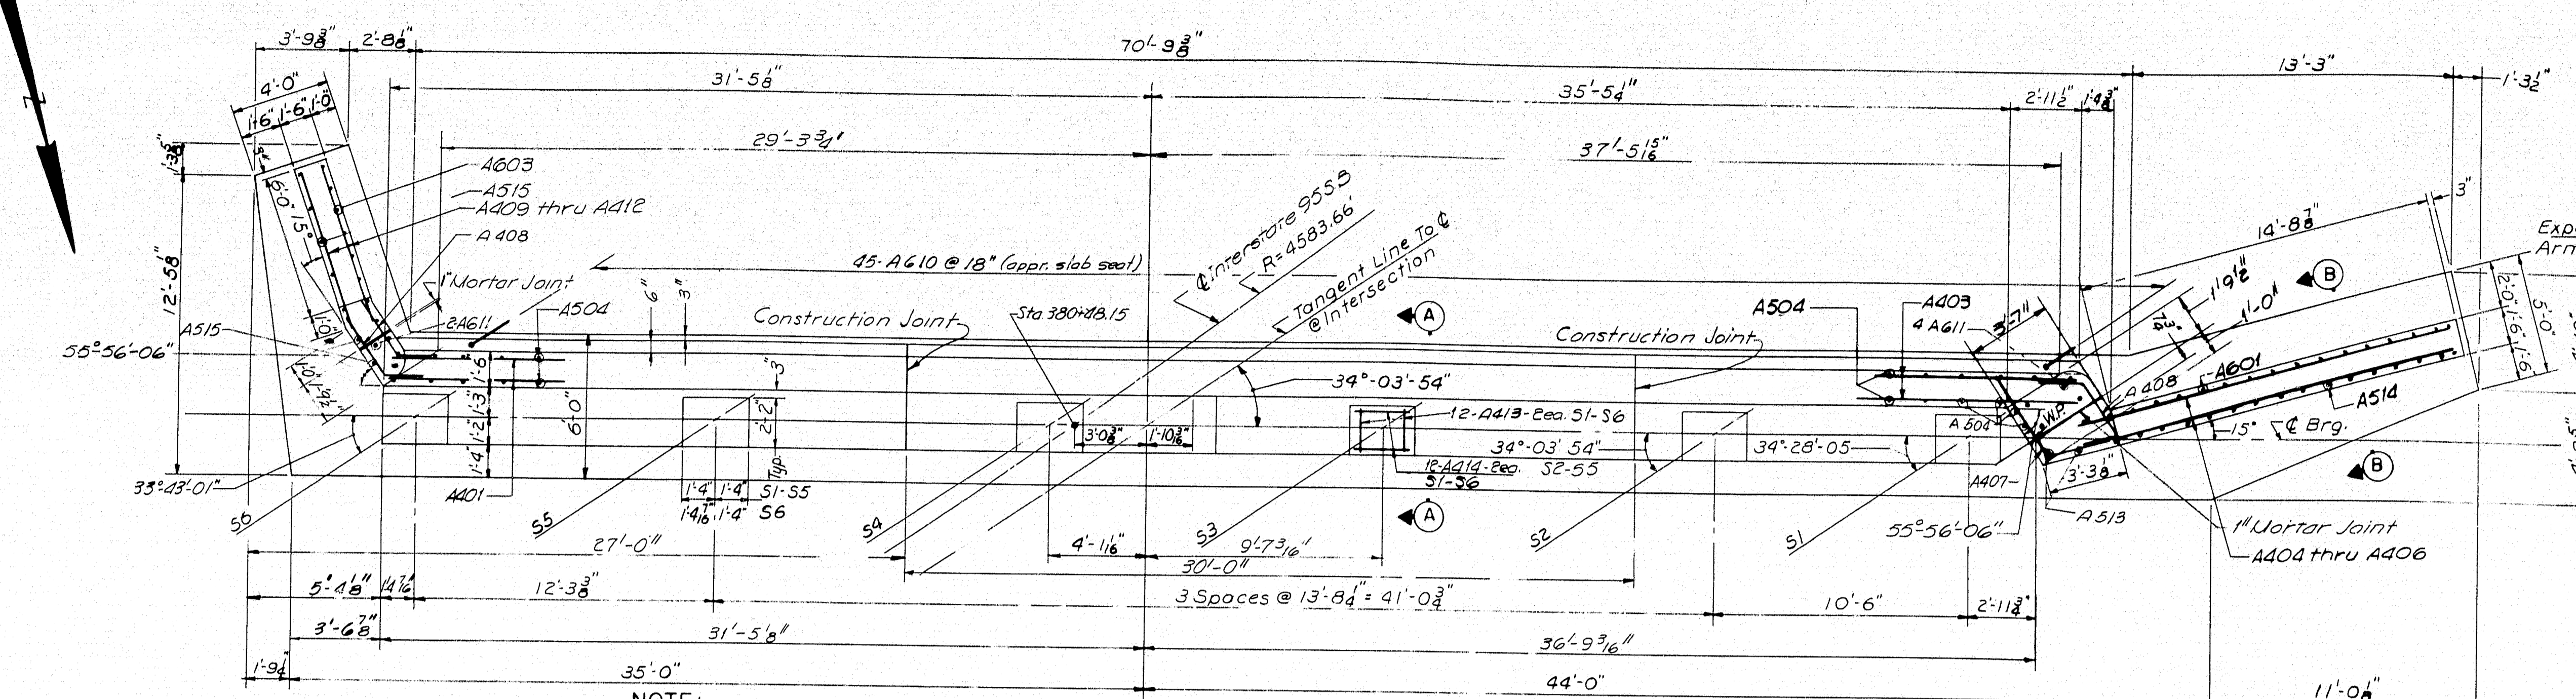 3'-9 3/8" 2'-8 1/8" 70'-9 3/8" 13'-3" 1'-3 1/2"
4'-0" 31'-5 1/8" 35'-5 1/4" 2'-11 1/2" 1'-4 3/8"
1'-6" 1'-6" 1'-0"
29'-3 3/4" 37'-5 15/16"
A603
A515
A409 thru A412
A 408
6'-0" 15°
12'-5 8"
1" Mortar Joint
45-A610 @ 18" (appr. slab seat)
6" 3"
₵ Interstate 95SB
R=4583.66'
Tangent Line To ₵
@ Intersection
14'-8 7/8" 3"
Exp
Arm
A
B
1'-9 1/2"
1'-0"
2'-0" 1'-6" 1'-6"
5'-0"
A515
1'-0"
2-A611
A504
Construction Joint
Sta 380+48.15
Construction Joint
A504
A403
4 A611
3'-7"
55°56'-06"
1'-0" 1'-9 1/2"
1'-6"
1'-3"
1'-2"
1'-4"
6'-0"
3"
2'-2"
Typ.
34°-03'-54"
12-A413-2ea. S1-S6
3'-0 3/8" 1'-10 3/16"
34°-03' 54" 34°-28'-05
12-A414-2ea. S2-S5
S1-S6
A 408
A601
A514
A 504
W.P.
15° ₵ Brg.
3'-3 1/8"
B
33°-43'-01"
A401
1'-4" 1'-4" S1-S5
1'-4 7/16" 1'-4" S6
A407
A 513
A
S6 S5 S4 S3 S2 S1
55°56'-06"
1" Mortar Joint
A404 thru A406
27'-0" 4'-1 1/16" 9'-7 3/16"
30'-0"
5'-4 1/8" 1'-4 7/16" 12'-3 3/8" 3 Spaces @ 13'-8 1/4" = 41'-0 3/4" 10'-6" 2'-11 3/4"
3'-6 7/8" 31'-5 1/8" 36'-9 3/16"
1'-9 1/4" 35'-0" 44'-0" 11'-0 1/8"
NOTE: